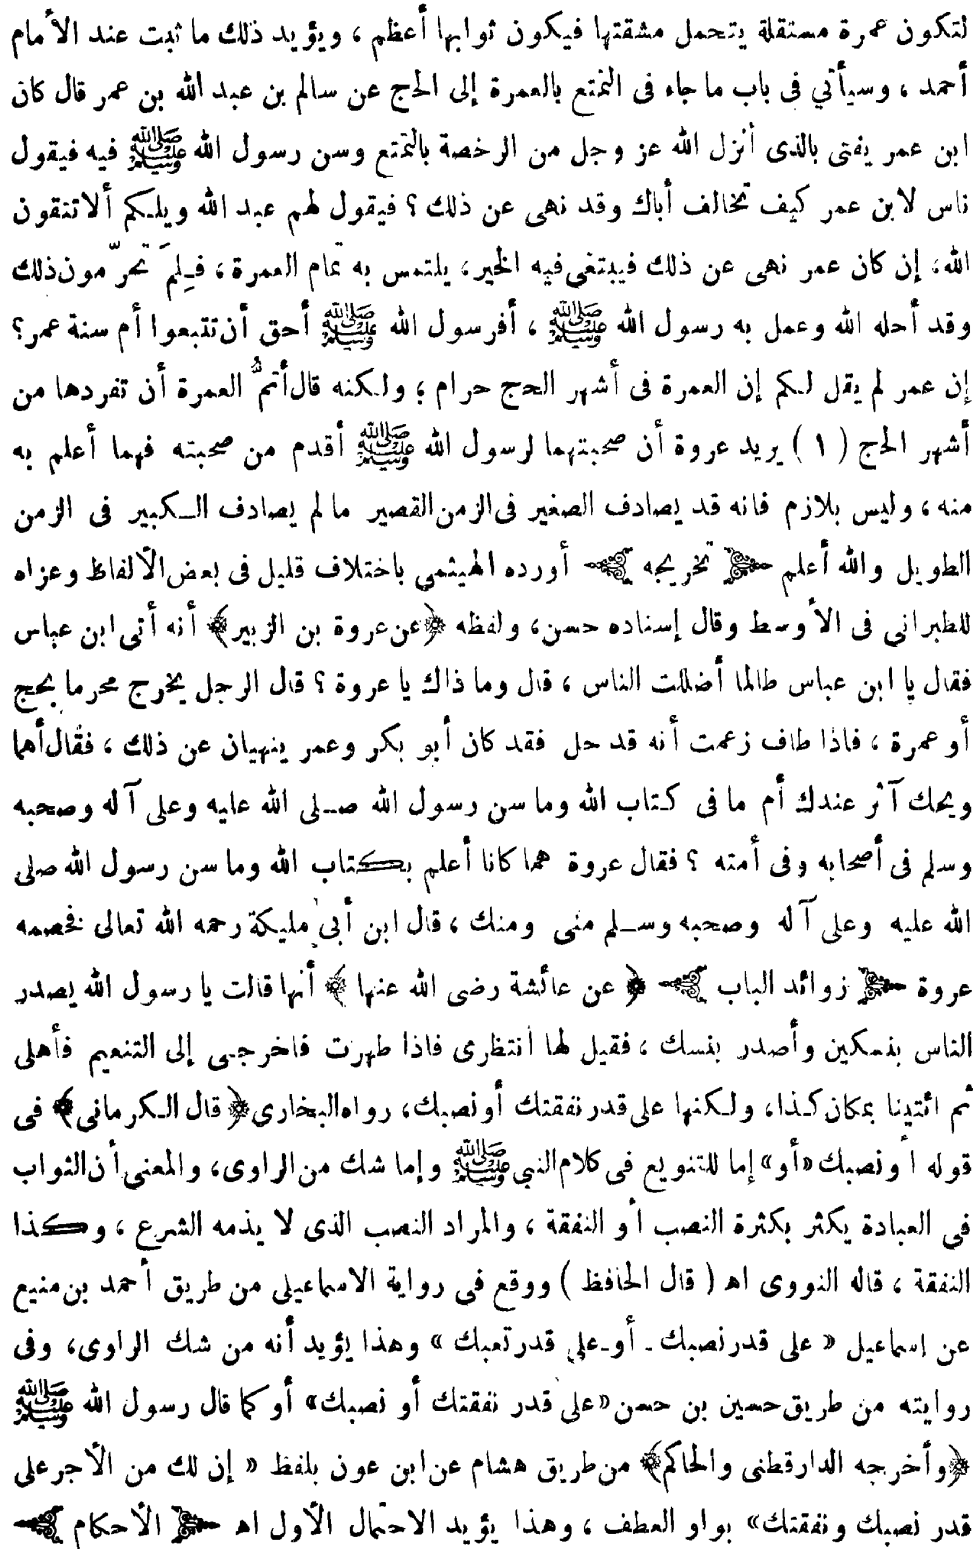 لتكون عمرة مستقلة يتحمل مشقتها فيكون ثوابها أعظم ، ويؤيد ذلك ما ثبت عند الأمام
أحمد ، وسيأتي فى باب ما جاء فى التمتع بالعمرة إلى الحج عن سالم بن عبد الله بن عمر قال كان
ابن عمر يفتى بالذى أنزل الله عز وجل من الرخصة بالتمتع وسن رسول الله ﷺ فيه فيقول
ناس لابن عمر كيف تخالف أباك وقد نهى عن ذلك ؟ فيقول لهم عبد الله ويلكم ألا تتقون
الله، إن كان عمر نهى عن ذلك فيبتغى فيه الخير، يلتمس به تمام العمرة ، فلِمَ تحرّ مون ذلك
وقد أحله الله وعمل به رسول الله ﷺ ، أفرسول الله ﷺ أحق أن تتبعوا أم سنة عمر؟
إن عمر لم يقل لكم إن العمرة فى أشهر الحج حرام ؛ ولكنه قال أتمُّ العمرة أن تفردها من
أشهر الحج ( ١ ) يريد عروة أن صحبتهما لرسول الله ﷺ أقدم من صحبته فهما أعلم به
منه ، وليس بلازم فانه قد يصادف الصغير فى الزمن القصير ما لم يصادف الكبير فى الزمن
الطويل والله أعلم ﴿ تخريجه ﴾ أورده الهيثمى باختلاف قليل فى بعض الألفاظ وعزاه
للطبرانى فى الأوسط وقال إسناده حسن، ولفظه ﴿عن عروة بن الزبير﴾ أنه أتى ابن عباس
فقال يا ابن عباس طالما أضللت الناس ، قال وما ذاك يا عروة ؟ قال الرجل يخرج محرما بحج
أو عمرة ، فاذا طاف زعمت أنه قد حل فقد كان أبو بكر وعمر ينهيان عن ذلك ، فقال أهما
ويحك آثر عندك أم ما فى كتاب الله وما سن رسول الله صلى الله عليه وعلى آله وصحبه
وسلم فى أصحابه وفى أمته ؟ فقال عروة هما كانا أعلم بكتاب الله وما سن رسول الله صلى
الله عليه وعلى آله وصحبه وسلم منى ومنك ، قال ابن أبى مليكة رحمه الله تعالى فخصمه
عروة ﴿ زوائد الباب ﴾ ﴿ عن عائشة رضى الله عنها ﴾ أنها قالت يا رسول الله يصدر
الناس بنسكين وأصدر بنسك ، فقيل لها انتظرى فاذا طهرت فاخرجى إلى التنعيم فأهلى
ثم ائتينا بمكان كذا، ولكنها على قدر نفقتك أو نصبك، رواه البخارى ﴿ قال الكرمانى ﴾ فى
قوله أو نصبك «أو» إما للتنويع فى كلام النبى ﷺ وإما شك من الراوى، والمعنى أن الثواب
فى العبادة يكثر بكثرة النصب أو النفقة ، والمراد النصب الذى لا يذمه الشرع ، وكذا
النفقة ، قاله النووى اهـ ( قال الحافظ ) ووقع فى رواية الاسماعيلى من طريق أحمد بن منيع
عن إسماعيل « على قدر نصبك ـ أو ـ على قدر تعبك » وهذا يؤيد أنه من شك الراوى، وفى
روايته من طريق حسين بن حسن «على قدر نفقتك أو نصبك» أو كما قال رسول الله ﷺ
﴿وأخرجه الدارقطنى والحاكم﴾ من طريق هشام عن ابن عون بلفظ « إن لك من الأجر على
قدر نصبك ونفقتك» بواو العطف ، وهذا يؤيد الاحتمال الأول اهـ ﴿ الأحكام ﴾